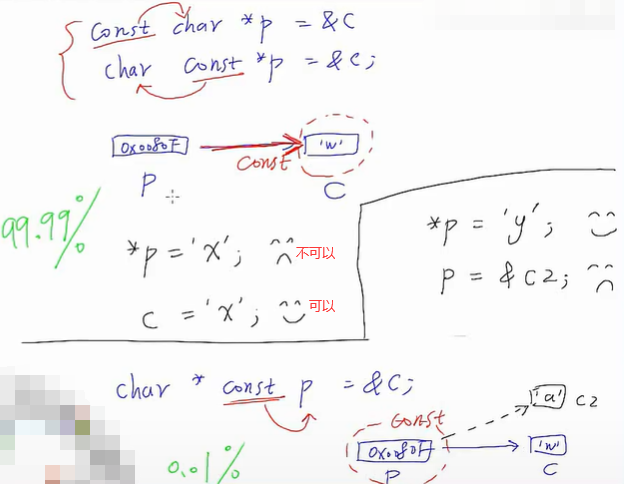 const char *p = &C
char const *p = &c;
0x0080F
'w'
const
p
C
99.99%
*p = 'x'; 不可以
c = 'x'; 可以
*p = 'y';
p = &c2;
char * const p = &C;
const
'a' c2
0x0080F
'w'
p
C
0.01%